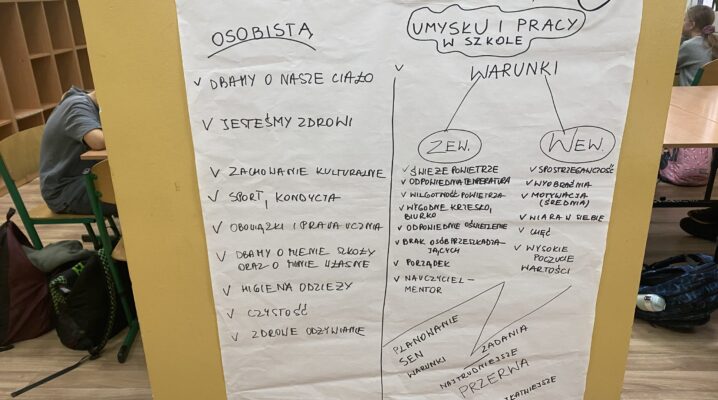 OSOBISTĄ
✓ DBAMY O NASZE CIAŁO
✓ JESTEŚMY ZDROWI
✓ ZACHOWANIE KULTURALNE
✓ SPORT, KONDYCJA
✓ OBOWIĄZKI I PRAWA UCZNIA
✓ DBAMY O MIENIE SZKOŁY
ORAZ O MIENIE WŁASNE
✓ HIGIENA ODZIEŻY
✓ CZYSTOŚĆ
✓ ZDROWE ODŻYWIANIE
UMYSŁU I PRACY
W SZKOLE
✓ WARUNKI
ZEW.
✓ ŚWIEŻE POWIETRZE
✓ ODPOWIEDNIA TEMPERATURA
✓ WILGOTNOŚĆ POWIETRZA
✓ WYGODNE KRZESŁO,
BIURKO
✓ ODPOWIEDNIE OŚWIETLENIE
✓ BRAK OSÓB PRZESZKADZA-
JĄCYCH
✓ PORZĄDEK
✓ NAUCZYCIEL-
MENTOR
WEW.
✓ SPOSTRZEGAWCZOŚĆ
✓ WYOBRAŹNIA
✓ MOTYWACJA
(ŚREDNIA)
✓ WIARA W SIEBIE
✓ CHĘĆ
✓ WYSOKIE
POCZUCIE
WARTOŚCI
PLANOWANIE
SEN
WARUNKI
ZADANIA
NAJTRUDNIEJSZE
PRZERWA